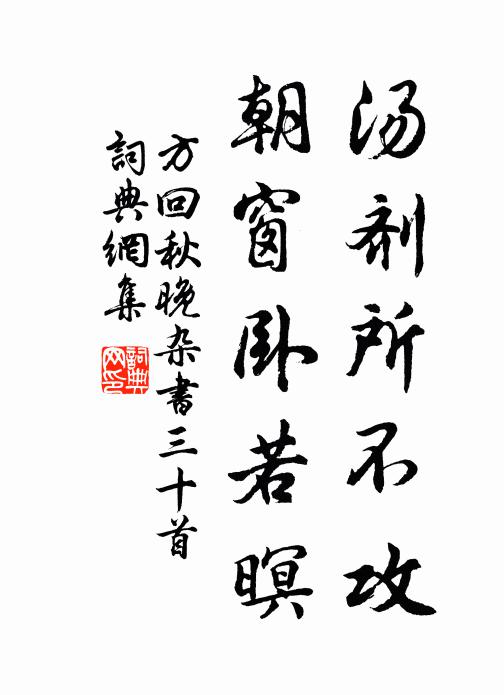 汤剂所不攻
朝窗卧若暝
方回秋晚杂书三十首
词典網集
詞典网印